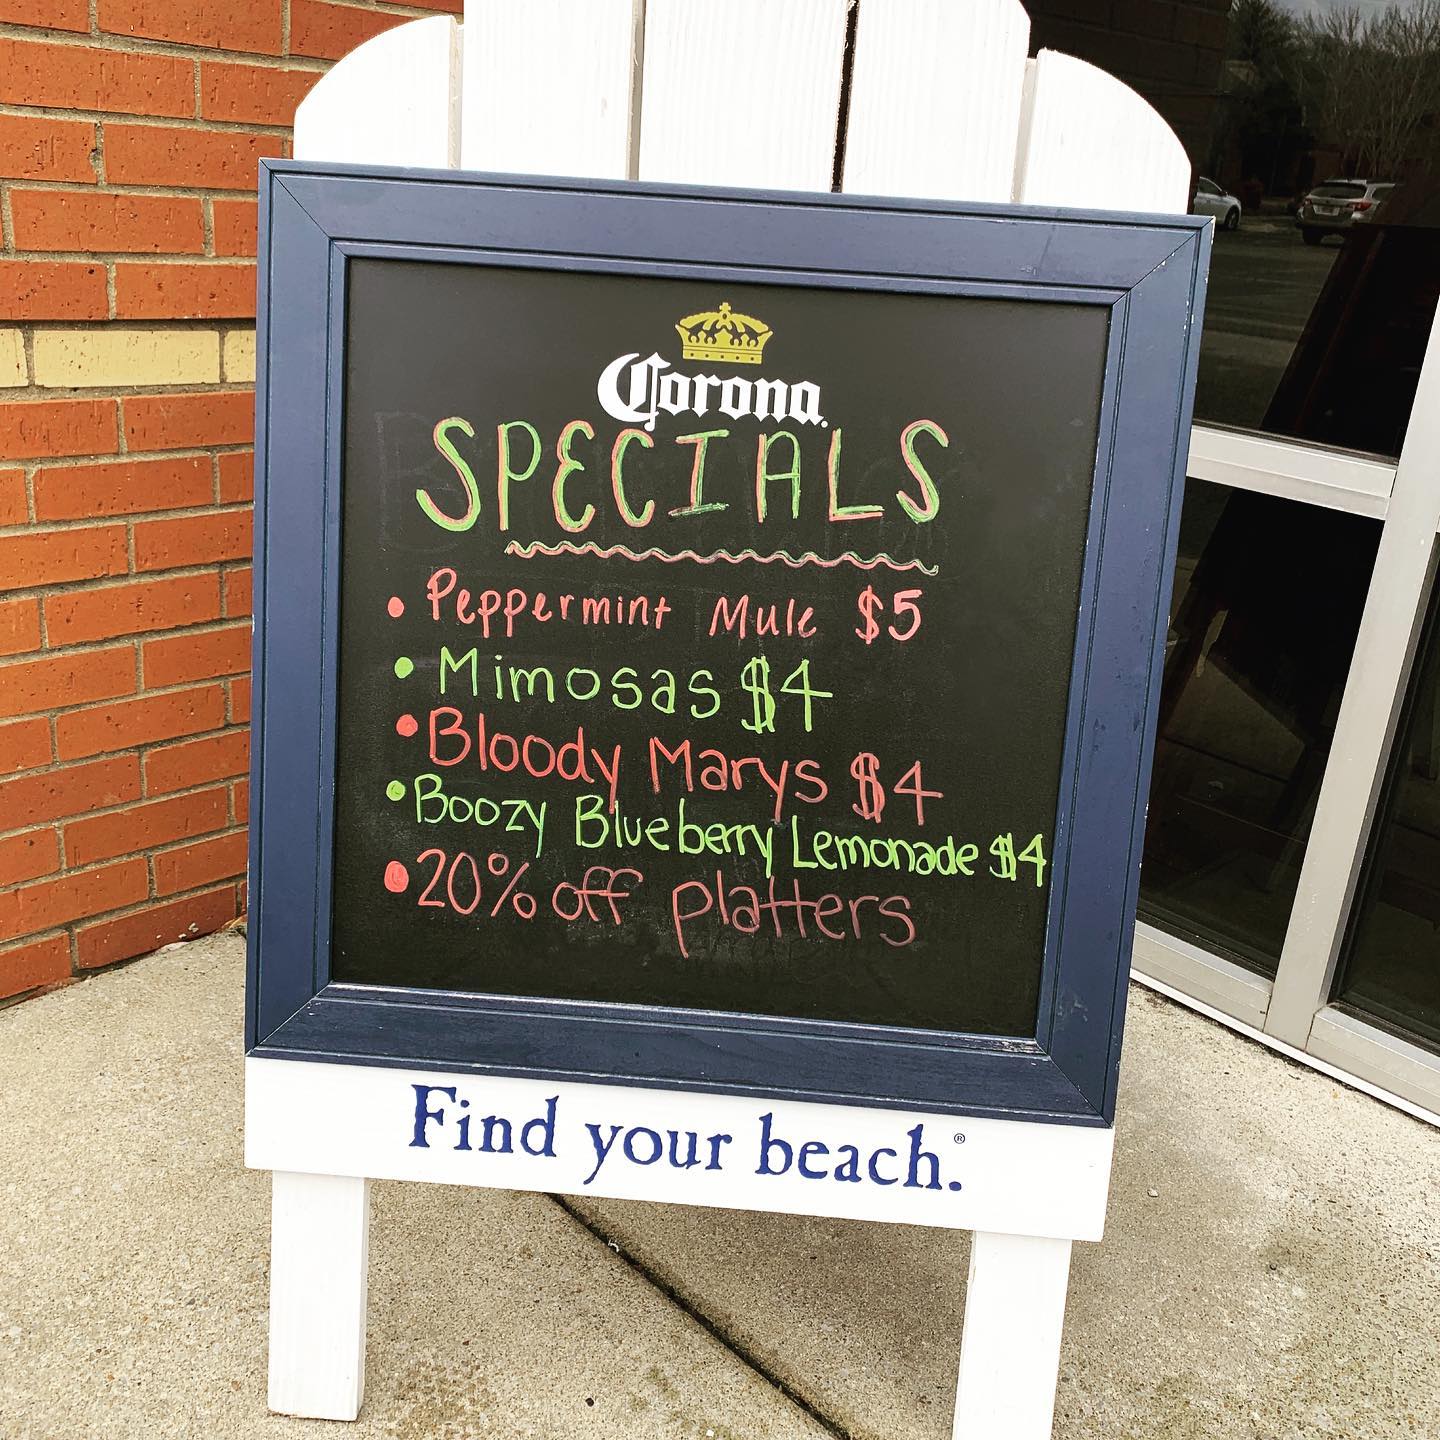 Corona
SPECIALS
• Peppermint Mule $5
• Mimosas $4
• Bloody Marys $4
• Boozy Blueberry Lemonade $4
• 20% off platters
Find your beach.®